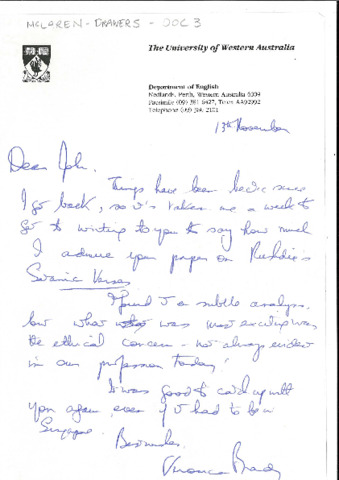 MCLAREN - DRAWERS - DOC 3
The University of Western Australia
Department of English
Nedlands, Perth, Western Australia 6009
Telephone (09) 380 2101
13th November
Dear John,
Things have been hectic since
I got back, so it's taken me a week to
get to writing to you to say how much
I admire your paper on Rushdie's
Satanic Verses
I found it a subtle analysis.
but what was most exciting was
the ethical concern - not always evident
in our profession today!
It was good to catch up with
you again, even if it had to be in
Singapore.
Best wishes.
Veronica Brady